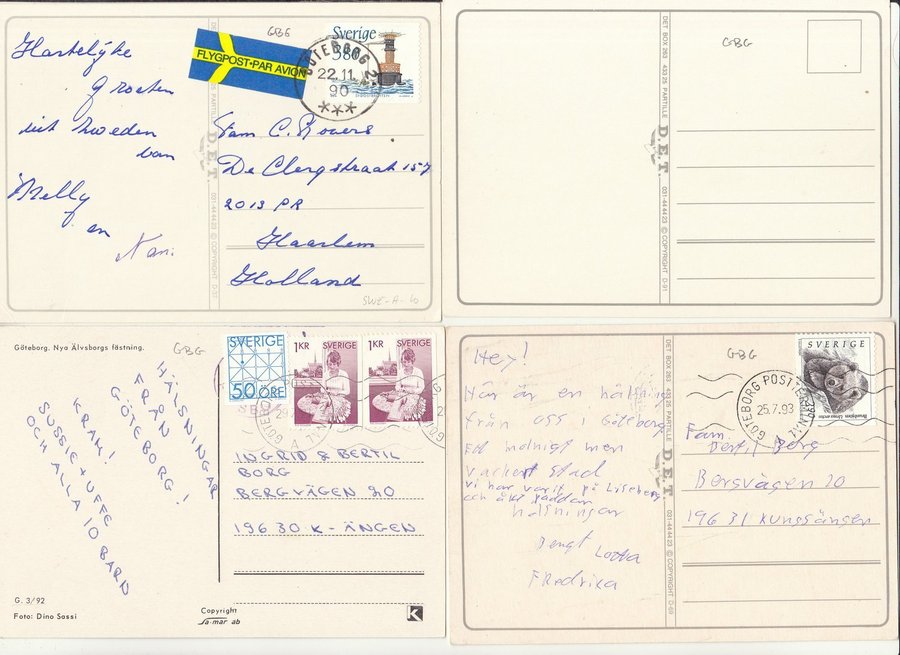 GBG
FLYGPOST•PAR AVION
Sverige
380
GÖTEBORG 2
22.11.
90
Hartelijke
groeten
uit Zweden
van
Nelly
en
DET BOX 263 433 25 PARTILLE D.E.T. 031-44 44 23 © COPYRIGHT D-37
Fam C. Rovers
De Clerqstraat 157
2013 PR
Haarlem
Holland
SWE-A-10
GBG
DET BOX 263 433 25 PARTILLE D.E.T. 031-44 44 23 © COPYRIGHT D-91
Göteborg. Nya Älvsborgs fästning.
GBG
SVERIGE
50 ÖRE
1KR SVERIGE
1KR SVERIGE
HÄLSNINGAR
FRÅN
GÖTEBORG!
KRAM!
SUSSIE + UFFE
OCH ALLA 10 BARN
INGRID & BERTIL
BORG
BERGVÄGEN 20
19630 K-ÄNGEN
G. 3/92
Foto: Dino Sassi
Copyright
Sa-mar ab
K
GBG
SVERIGE
GÖTEBORG POSTTERMINAL
25.7.93
Hey!
Här är en hälsning
från oss i Göteborg
Ett molnigt men
vackert stad
Vi har varit på Liseberg
och åkt paddan
hälsningar
Bengt Lotta
Fredrika
DET BOX 263 433 25 PARTILLE D.E.T. 031-44 44 23 © COPYRIGHT D-69
Fam.
Bertil Berg
Bersvägen 20
19631 Kungsängen